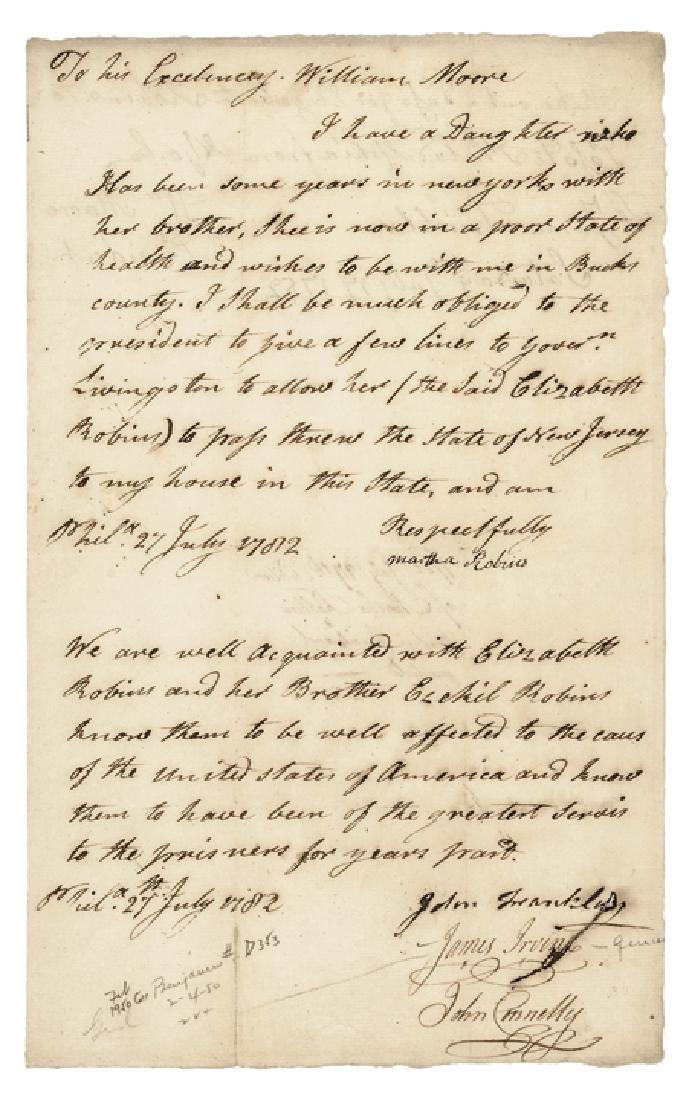 To his Excelencey. William Moore
I have a Daughter who
Has been some years in newyork with
her brother, Shee is now in a poor State of
health and wishes to be with me in Bucks
county. I Shall be much obliged to the
president to give a few lines to Govern.
Livingston to allow her (the Said Elizabeth
Robins) to pass threw the State of New Jersey
to my house in this State, and am
Phila. 27 July 1782 Respectfully
martha Robins
We are well Acquainted with Elizabeth
Robins and her Brother Ezekil Robins
know them to be well affected to the caus
of the United states of America and know
them to have been of the greatest Servis
to the prisners for years pard.
Phila. 27th. July 1782 John Franklin
James Irvine
John Connelly
Feb 1950 Benjamin # D353
2-4-50